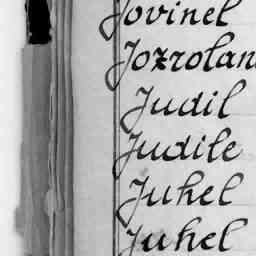 Jovinel
Jozrolan
Judil
Judile
Juhel
Juhel